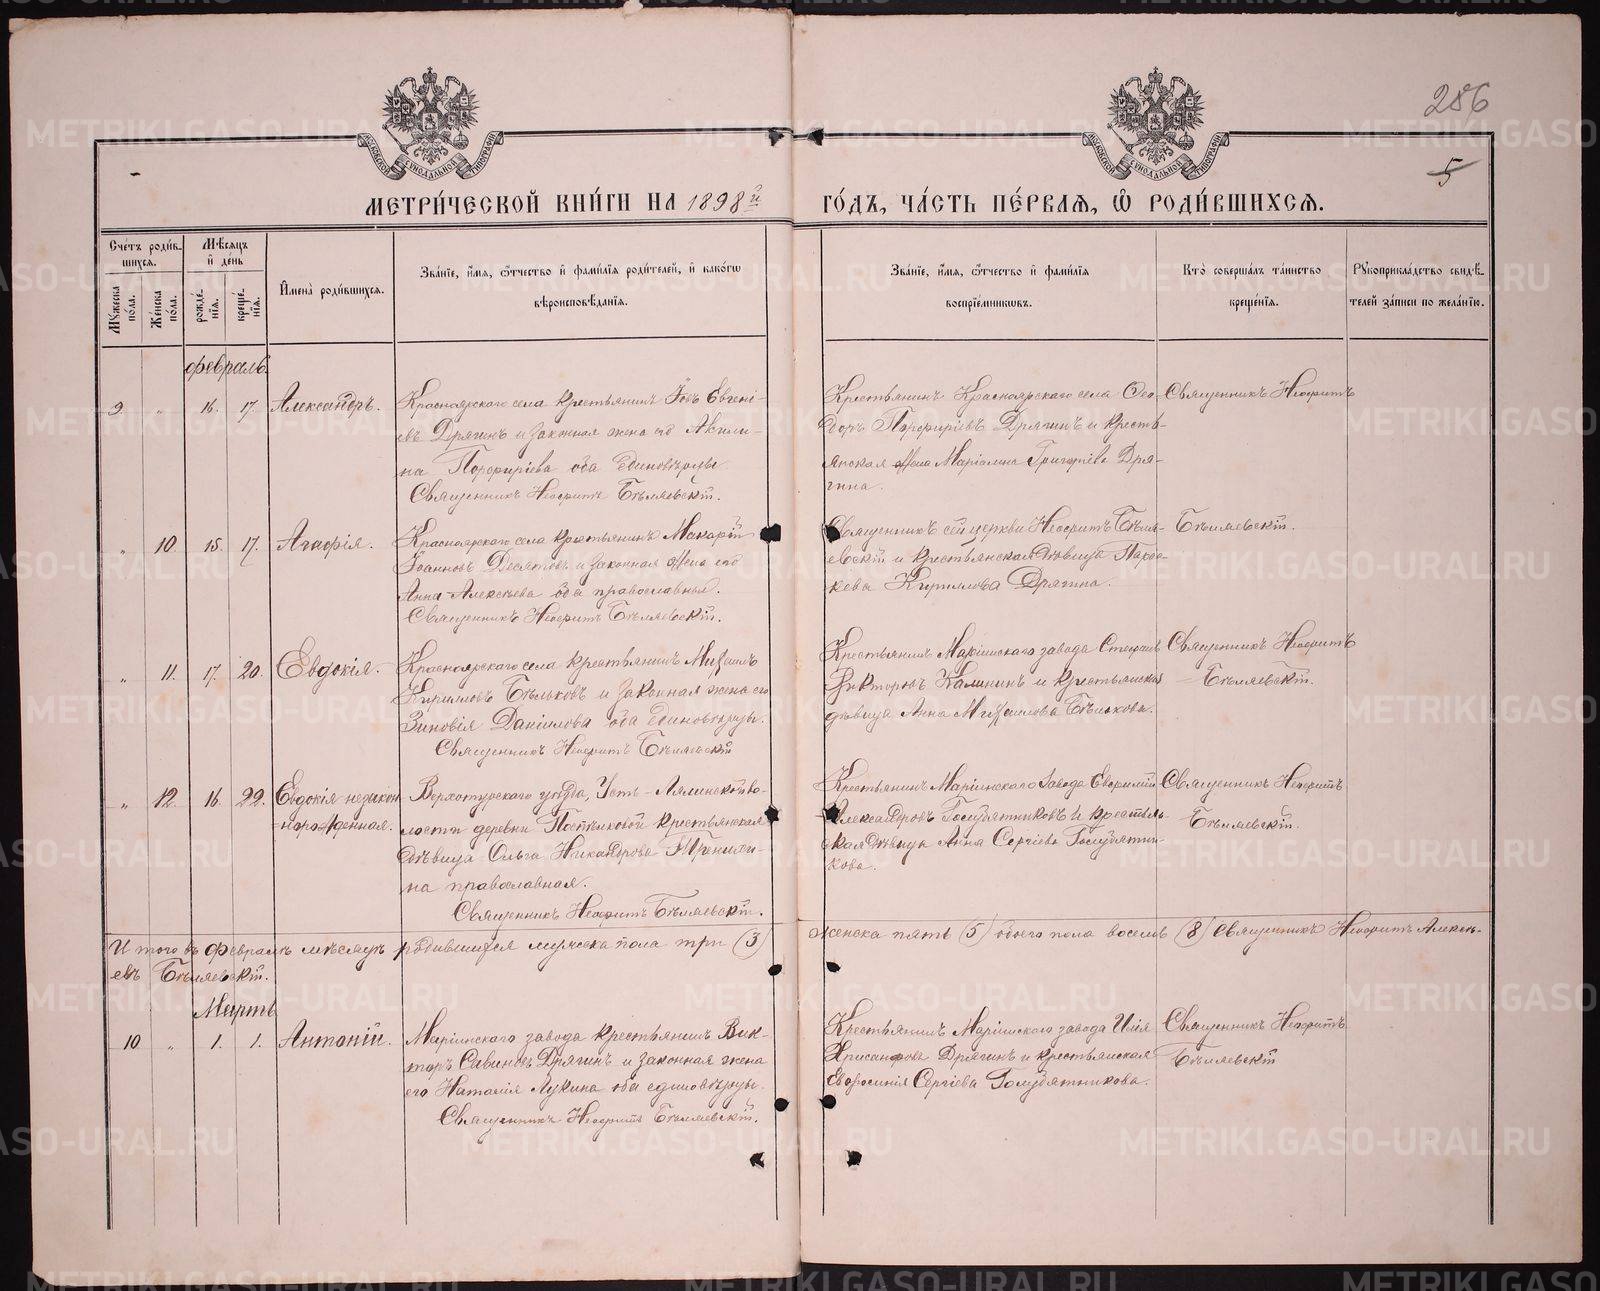 286
5
МЕТРИ́ЧЕСКОЙ КНИ́ГИ НА 1898й ГО́ДЪ, ЧА́СТЬ ПЕ́РВАЯ, Ѿ РОДИ́ВШИХСЯ.
Сче́тъ роди́вшихся.
Му́жеска по́ла.
Же́нска по́ла.
Мѣ́сяцъ и де́нь
рожде́нія.
креще́нія.
Имена̀ роди́вшихся.
Зва́ніе, и́мя, ѻ́тчество и фами́лія роди́телей, и како́гѡ
вѣроисповѣ́данія.
Зва́ніе, и́мя, ѻ́тчество и фами́лія
воспріе́мниковъ.
Кто̀ соверша́лъ та́инство
креще́нія.
Рукоприкла́дство свидѣ́-
телей за́писи по жела́нію.
Февраль.
9. „ 16. 17. Александръ.
Красноярскаго села крестьянинъ Іовъ Евгені-
евъ Дрягинъ и законная жена его Акили-
на Порфиріева оба единовѣрцы
Священникъ Неофитъ Бѣляевскій.
Крестьянинъ Красноярскаго села Ѳео-
доръ Порфиріевъ Дрягинъ и кресть-
янская жена Маріамна Григоріева Дря-
гина.
Священникъ Неофитъ
„ 10 15. 17. Агафія.
Красноярскаго села крестьянинъ Макарій
Іоанновъ Десятовъ и законная жена его
Анна Алексѣева оба православныя.
Священникъ Неофитъ Бѣляевскій.
Священникъ сей церкви Неофитъ Бѣля-
евскій и крестьянская дѣвица Парас-
кева Кирилова Дрягина.
Бѣляевскій.
„ 11. 17. 20. Евдокія.
Красноярскаго села крестьянинъ Михаилъ
Кириловъ Бѣльковъ и законная жена его
Зиновія Даніилова оба единовѣрцы.
Священникъ Неофитъ Бѣляевскій
Крестьянинъ Маріинскаго завода Стефанъ
Викторовъ Калининъ и крестьянская
дѣвица Анна Михаилова Бѣлькова.
Священникъ Неофитъ
Бѣляевскій.
„ 12. 16. 22. Евдокія незакон-
норожденная.
Верхотурскаго уѣзда, Усть-Лялинской во-
лости деревни крестьянская
дѣвица Ольга Никандрова
на православная.
Священникъ Неофитъ Бѣляевскій.
Крестьянинъ Маріинскаго завода Евфимій
Александровъ Голубятниковъ и крестьян-
ская дѣвица Анна Сергіева Голубятни-
кова.
Священникъ Неофитъ
Бѣляевскій.
Итого въ Февралѣ мѣсяцѣ родившихся мужеска пола три (3) женска пять (5) обоего пола восемь (8) Священникъ Неофитъ Алексѣ-
евъ Бѣляевскій.
Мартъ
10 „ 1. 1. Антоній.
Маріинскаго завода крестьянинъ Вик-
торъ Савиновъ Дрягинъ и законная жена
его Наталія Лукина оба единовѣрцы.
Священникъ Неофитъ Бѣляевскій.
Крестьянинъ Маріинскаго завода Илія
Хрисанфова Дрягинъ и крестьянская
Евфросинія Сергіева Голубятникова.
Священникъ Неофитъ
Бѣляевскій
METRIKI.GASO-URAL.RU